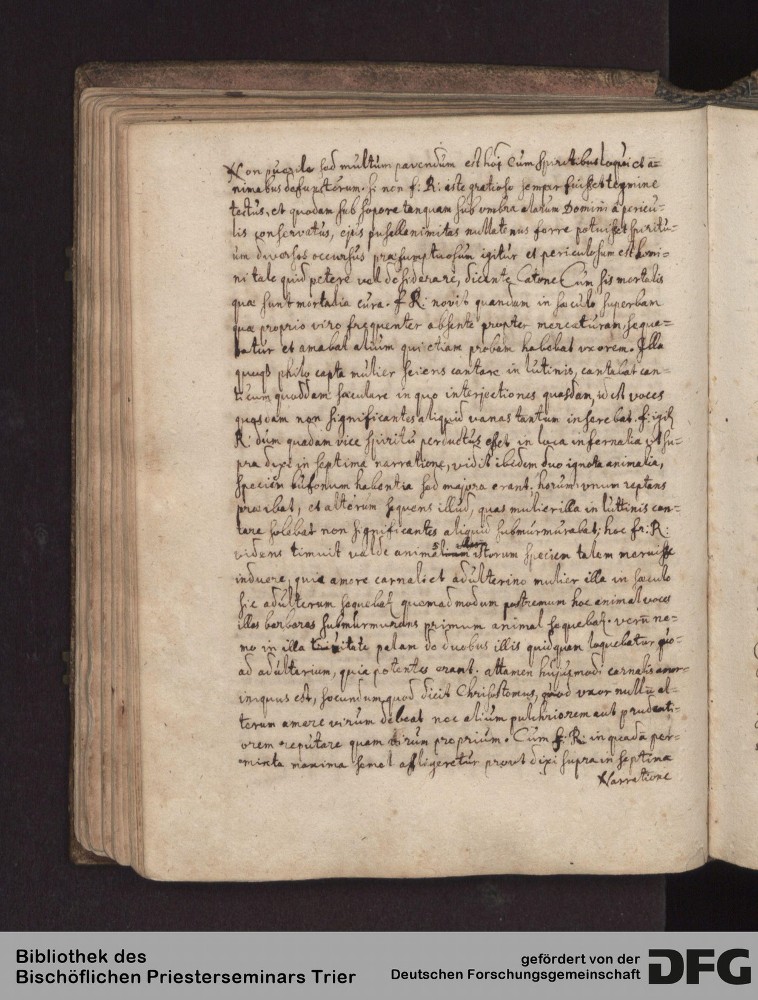 Non puerile sed multum pavendum est hoc Cum spiritibus loqui et a=
nimabus defunctorum. si non f: R: iste gratioso semper fuisset tegmine
tectus, et quodam sub sopore tanquam sub umbra alarum Domini a pericu-
lis conservatus, ejus pusillanimitas nullatenus ferre potuisset spiritu-
um diversos occursus præsumptuosum igitur et periculosum est homi-
ni tale quid petere vel desiderare, dicente Catone Cum sis mortalis
quæ sunt mortalia cura. f R: novit quandam in sæculo superbam
quæ proprio viro frequenter absente propter mercaturam, seque=
batur et amabat alium qui etiam probam habebat uxorem. Illa
philo capta mulier sciens cantare in lutinis, cantabat can-
ticum quoddam sæculare in quo interjectiones quasdam, id est voces
quasdam non significantes aliquid vanas tantum inserebat. f: igit
R: dum quadam vice spiritu perductus esset in loca infernalia ut su-
pra dixi in septima narratione, vidit ibidem duo ignota animalia,
speciem bufonum habentia sed majora erant. horum unum reptans
præibat, et alterum sequens illud, quas mulier illa in luttinis can-
tare solebat non significantes aliquid submurmurabat; hoc fr: R:
videns timuit valde istorum speciem talem meruisse
induere, quia amore carnali et adulterino mulier illa in sæculo
sic adulterum sequebat quemadmodum postremum hoc animal voces
illas barbaras submurmurans primum animal sequebat. verū ne-
mo in illa palam de duobus illis quidquam loquebatur quo-
ad adulterium, quia potentes erant. attamen hujusmodi carnalis amor
iniquus est, secundum quod dicit Chrisostomus, quod uxor nullū al-
terum amare virum debeat nec alium pulchriorem aut prudenti-
orem reputare quam virum proprium. Cum f: R: in quadā per-
maxima semel affligeretur prout dixi supra in septima
Narratione
Bibliothek des
Bischöflichen Priesterseminars Trier
gefördert von der
Deutschen Forschungsgemeinschaft
DFG